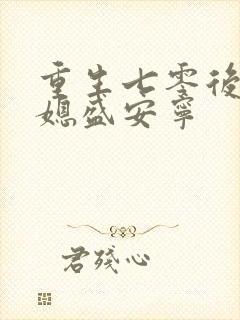 重生七零後
媳盛安寧
君殘心